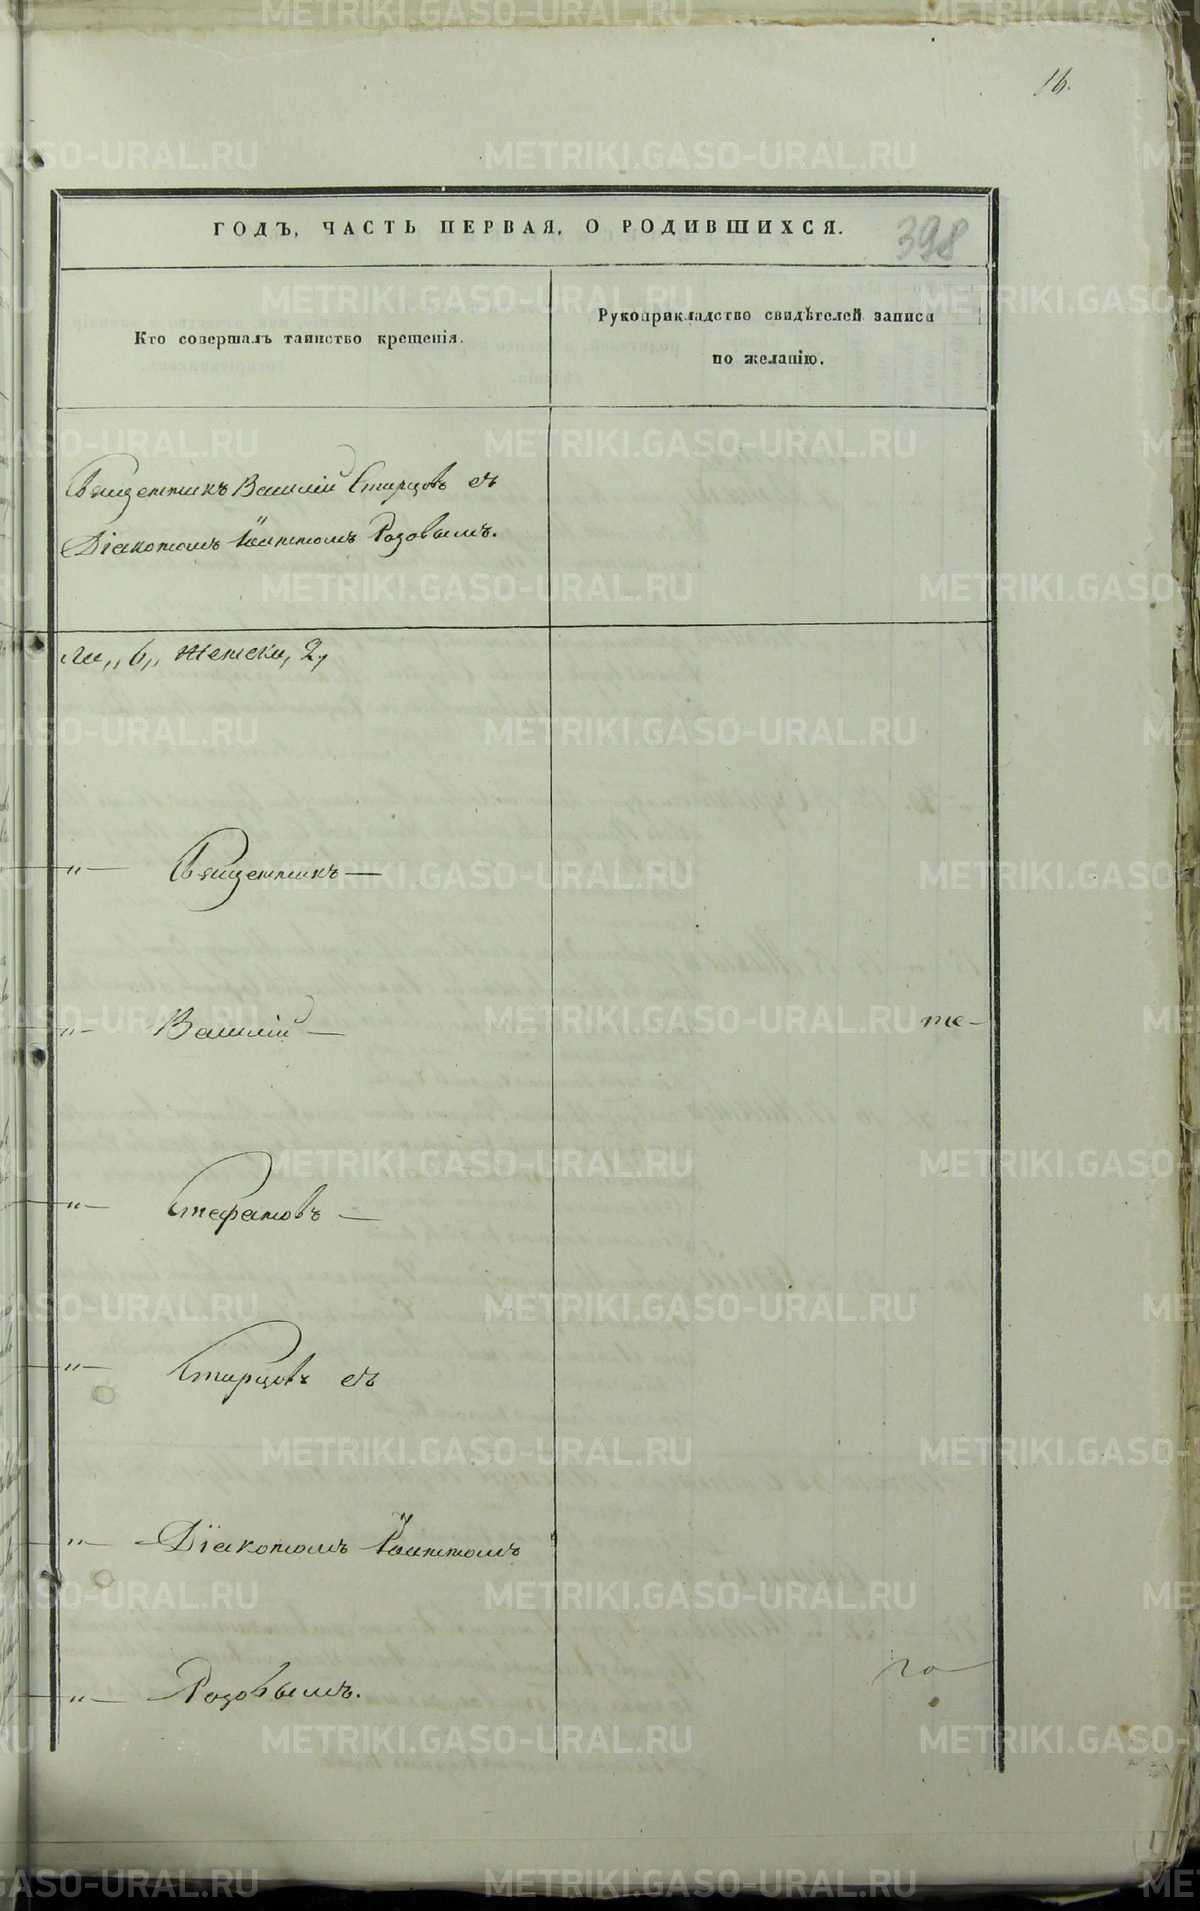 16.
ГОДЪ, ЧАСТЬ ПЕРВАЯ, О РОДИВШИХСЯ.
398
Кто совершалъ таинство крещенія.
Рукоприкладство свидѣтелей записи
по желанію.
Священникъ Василій Старцовъ съ
Діакономъ Іоанномъ Розовымъ.
ли,, 6,, женска, 2,
"— Священникъ —
"— Василій —
те—
"— Стефановъ —
"— Старцовъ съ
"— Діакономъ Іоанномъ
го—
"— Розовымъ.
METRIKI.GASO-URAL.RU